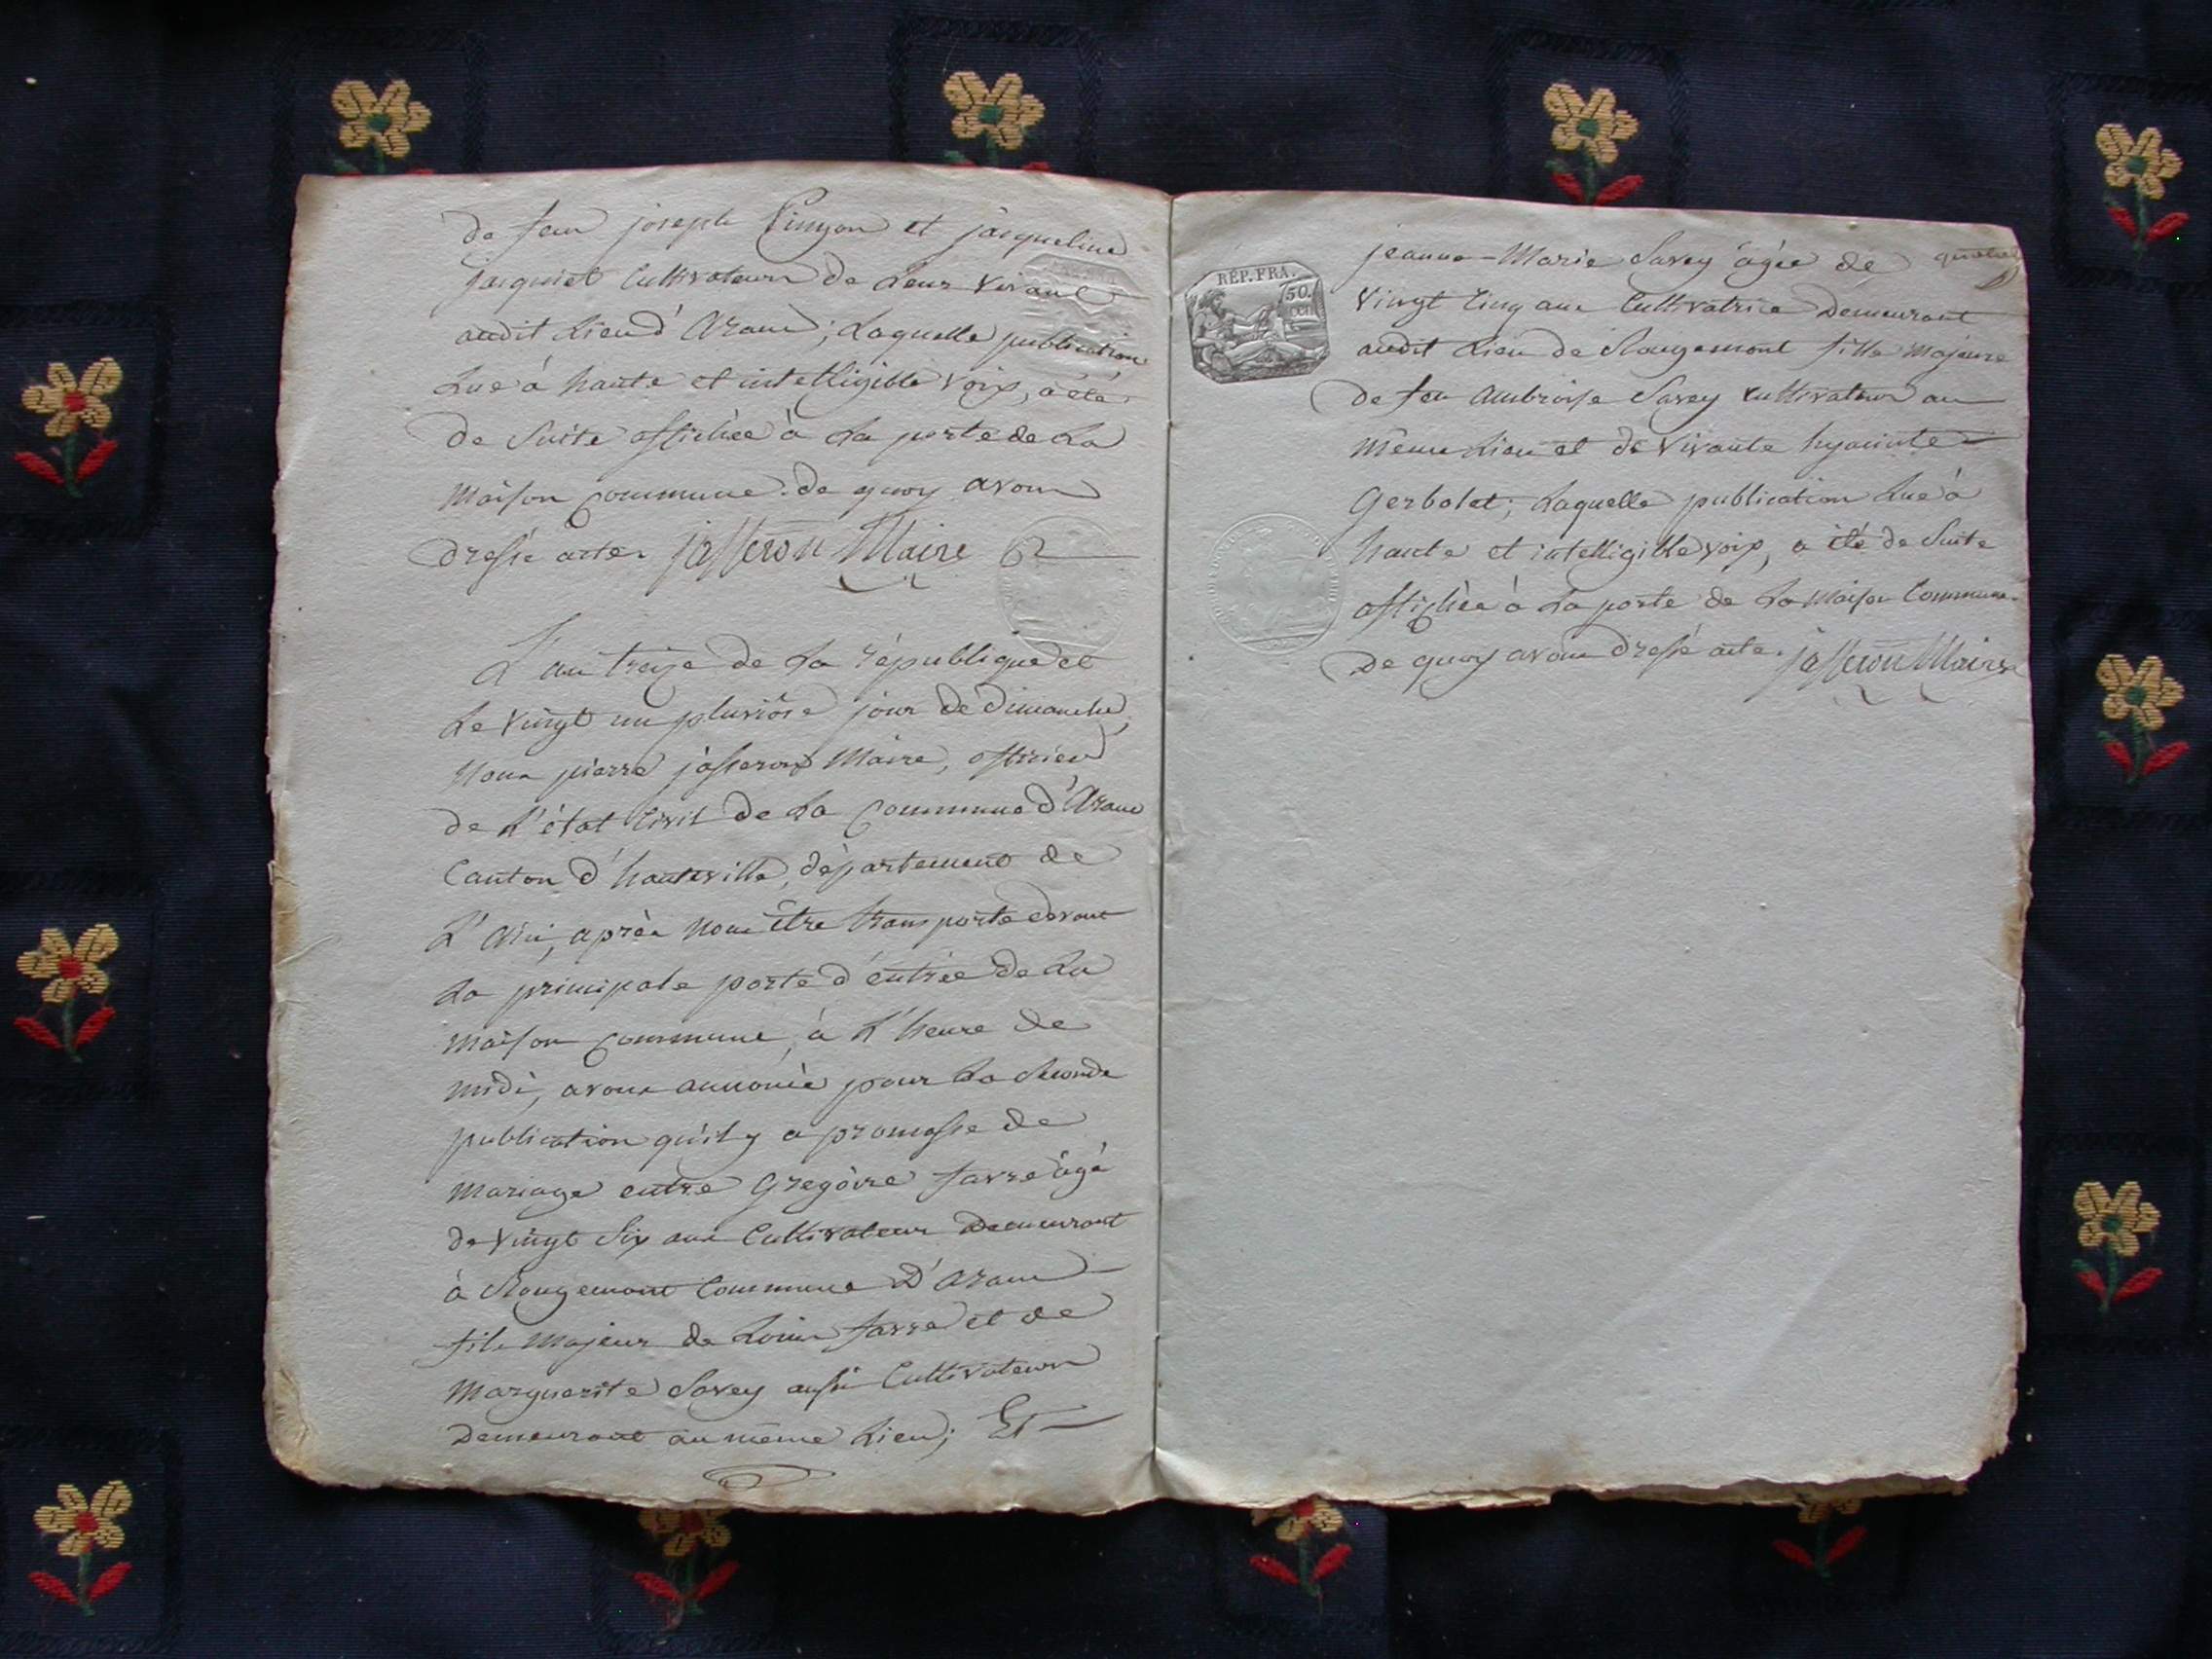 de feu joseph Pingon et jacqueline
jacquiet Cultivateurs de Leur Vivant
audit Lieu d'Aranc; Laquelle publication
Lue à haute et intelligible voix, a été
de Suite affichée à La porte de La
Maison Commune. de quoy avons
dressé acte. jasseron Maire
L'an treize de La république et
Le Vingt un pluviôse jour de dimanche,
Nous pierre jasseron Maire, officier
de L'état Civil de La Commune d'Aranc
Canton d'hauteville, département de
L'Ain, après nous être transporté devant
La principale porte d'entrée de La
maison Commune, à L'heure de
midi, avons annoncé pour La Seconde
publication qu'il y a promesse de
Mariage entre Gregoire favre âgé
de Vingt Six ans Cultivateur Demeurant
à Rougemont Commune D'Aranc
fils Majeur de Louis favre et de
Marguerite Savey aussi Cultivateurs
Demeurant au même Lieu; Et
RÉP. FRA.
50.
CEN
jeanne-Marie Savey âgée de
Vingt Cinq ans Cultivatrice Demeurant
audit Lieu de Rougemont fille Majeure
de feu Ambroise Savey Cultivateur au
même Lieu et de Vivante hyacinte
Gerbolet; Laquelle publication Lue à
haute et intelligible voix, a été de Suite
affichée à La porte de La Maison Commune.
De quoy avons Dressé acte. jasseron Maire